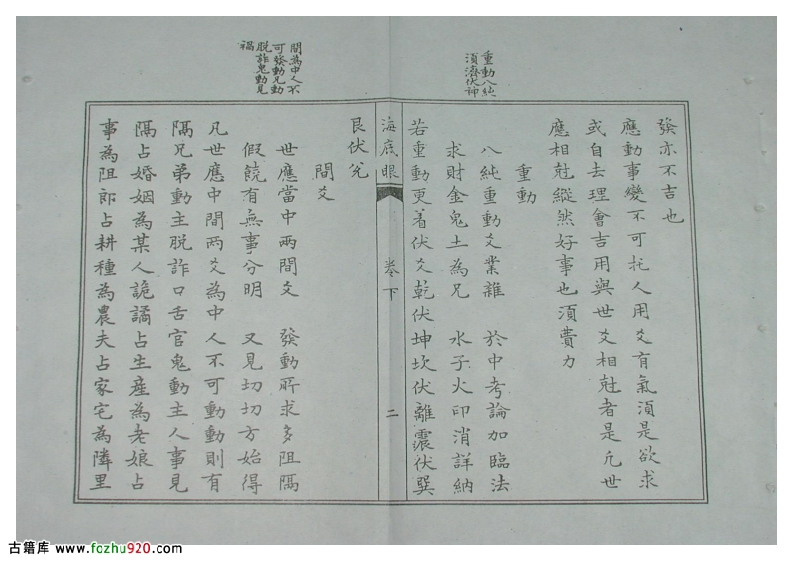 重動八純
須濟伏神
發亦不吉也
應動事變不可托人用爻有氣須是欲求
或自去理會吉用與世爻相尅者是凢世
應相尅縱然好事也須費力
重動
八純重動爻業雜 於中考論加臨法
求財金鬼土為兄 水子火印消詳納
若重動更着伏爻乾伏坤坎伏離震伏巽
海底眼 卷下 二
間為中人不
可發動兄動
脱詐鬼動見
禍
艮伏兌
間爻
世應當中兩間爻 發動所求多阻隔
假饒有無事分明 又見切切方始得
凡世應中間兩爻為中人不可動動則有
隔兄弟動主脱詐口舌官鬼動主人事見
隔占婚姻為某人詭譎占生産為老娘占
事為阻郎占耕種為農夫占家宅為隣里
古籍库 www.fozhu920.com